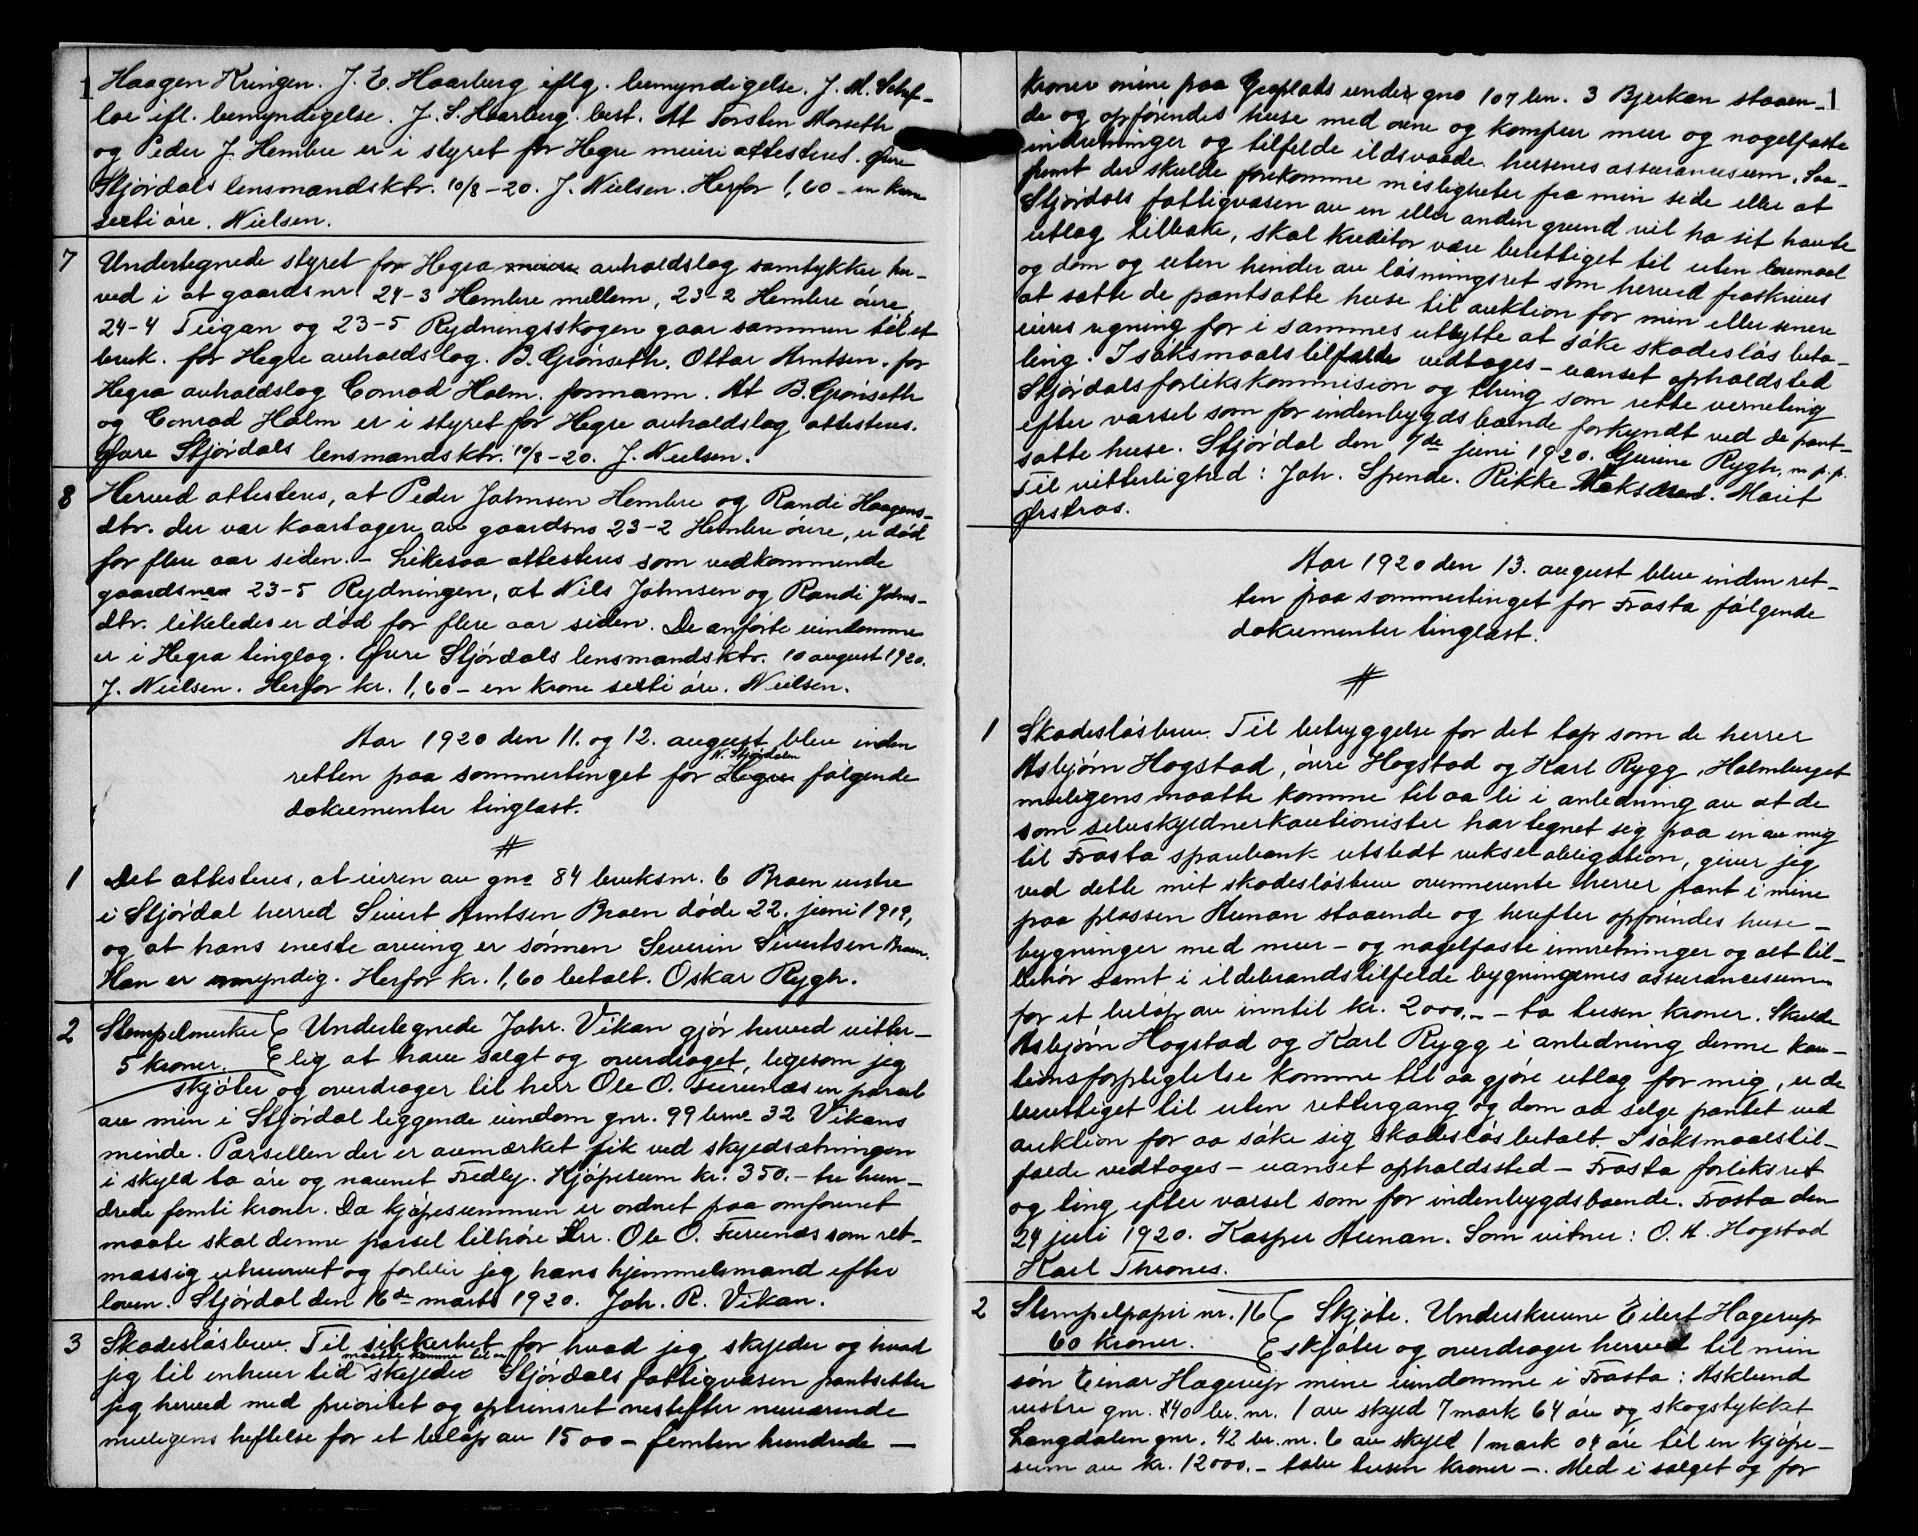 Haagen Kringen. J. E. Haarberg iflg. bemyndigelse. J. M. Schef-
loe ifl. bemyndigelse. J. S. Haarberg. best. At Torsten Morseth
og Peder J. Hembre er i styret for Hegre meieri attesteres. Øvre
Stjørdals lensmandsktr. 10/8-20. J. Nielsen. Herfor 1,60 - en kron
seksti øre. Nielsen.
7 Undertegnede styret for Hegra avholdslag samtykker her-
ved i at gaardsnr. 24-3 Hembre mellem, 23-2 Hembre øvre,
24-4 Teigan og 23-5 Rydningsskogen gaar sammen til et
bruk. for Hegre avholdslag. B. Grønseth. Ottar Arntsen. for
Hegra avholdslag Conrad Holm. formann. At B. Grønseth
og Conrad Holm er i styret for Hegre avholdslag attesteres.
Øvre Stjørdals lensmandsktr. 10/8-20. J. Nielsen.
8 Herved attesteres, at Peder Johnsen Hembre og Randi Haagens-
dtr. der var kaartagere av gaardsno 23-2 Hembre øvre, er død
for flere aar siden. - Likesaa attesteres som vedkommende
gaardsno 23-5 Rydningen, at Nils Johnsen og Randi Johns-
dtr. likeledes er død for flere aar siden. De anførte eiendomme
er i Hegra tinglag. Øvre Stjørdals lensmandsktr. 10 august 1920.
J. Nielsen. Herfor kr. 1,60 - en krone seksti øre. Nielsen.
Aar 1920 den 11. og 12. august blev inden
N. Stjørdalen
retten paa sommertinget for Hegre følgende
dokumenter tinglæst.
#
1 Det attesteres, at eieren av gno 84 bruksnr. 6 Braen vestre
i Stjørdal herred Sivert Arntsen Braen døde 22. juni 1919,
og at hans eneste arving er sønnen Severin Sivertsen Braen.
Han er myndig. Herfor kr. 1,60 betalt. Oskar Rygh.
2 Stempelmerke Undertegnede Johr. Vikan gjør herved vitter-
5 kroner. lig at have solgt og overdraget, ligesom jeg
skjøter og overdrager til herr Ole O. Furunæs en parsel
av min i Stjørdal liggende eiendom gnr. 99 brno 32 Vikans
minde. Parsellen der er avmærket fik ved skyldsætningen
i skyld to øre og navnet Fredly. Kjøpesum kr. 350.- tre hun-
drede femti kroner. Da kjøpesummen er ordnet paa omforenet
maate skal denne parsel tilhøre Hrr. Ole O. Furunæs som ret-
mæssig erhvervet og forblir jeg hans hjemmelsmand efter
loven. Stjørdal den 16de marts 1920. Joh. R. Vikan.
3 Skadesløsbrev. Til sikkerhet for hvad jeg skylder og hvad
maatte komme til at
jeg til enhver tid skylder Stjørdals fattigvæsen pantsetter
jeg herved med prioritet og optrinsret næstefter nuværende
muligens heftelse for et beløp av 1500 - femten hundrede -
kroner mine paa Geaplads under gno 107 brn. 3 Bjerkan staaen-
de og opførendes huse med ovne og komfur mur og nagelfaste
indretninger og tilfelde ildsvaade husenes assurancesum. Saa-
fremt der skulde forekomme misligheter fra min side eller at
Stjørdals fattigvæsen av en eller anden grund vil ha sit havte
utlæg tilbake, skal kreditor være berettiget til uten lovmaal
og dom og uten hinder av løsningsret som herved fraskrives
at sætte de pantsatte huse til auktion for min eller senere
eieres regning for i sammes utbytte at søke skadesløs beta-
ling. I søksmaalstilfælde vedtages - uanset opholdsted
Stjørdals forlikskommision og thing som rette verneting
efter varsel som for indenbygds boende forkyndt ved de pant-
satte huse. Stjørdal den 7de juni 1920. Gurine Rygh, m. p. p.
Til vitterlighed: Joh. Spende. Rikke Marit
Ørstras.
Aar 1920 den 13. august blev inden ret-
ten paa sommertinget for Frosta følgende
dokumenter tinglæst.
#
1 Skadesløsbrev. Til betryggelse for det tap som de herrer
Asbjørn Hogstad, øvre Hogstad og Karl Rygg, Holmberget
muligens maatte komme til aa li i anledning av at de
som selvskyldnerkautionister har tegnet sig paa en av mig
til Frosta sparebank utstedt vekselobligation, giver jeg
ved dette mit skadesløsbrev ovennevnte herrer pant i mine
paa plassen Aunan staaende og herefter opførendes huse-
bygninger med mur- og nagelfaste innretninger og alt til-
behør samt i ildebrandstilfelde bygningernes assurancesum
for et beløp av inntil kr. 2000.- - to tusen kroner. Skulde
Asbjørn Hogstad og Karl Rygg i anledning denne kau-
tionsforpligtelse komme til aa gjøre utlag for mig, er de
berettiget til uten rettergang og dom aa selge pantet ved
auktion for aa søke sig skadesløs betalt. I søksmaalstil-
fælde vedtages - uanset opholdssted - Frosta forliksret
og ting efter varsel som for indenbygdsboende. Frosta den
24 juli 1920. Kasper Aunan. Som vitner: O. A. Hogstad
Karl Thrones.
2 Stempelpapir nr. 16 Skjøte. Underskrevne Eilert Hagerup
60 kroner. skjøter og overdrager herved til min
søn Einar Hagerup mine eiendomme i Frosta: Asklund
vestre gnr. 40 br. nr. 1 av skyld 7 mark 64 øre og skogstykket
Langdalen gnr. 42 br. nr. 6 av skyld 1 mark 04 øre til en kjøpe-
sum av kr. 12000.- tolv tusen kroner -. Med i salget og for